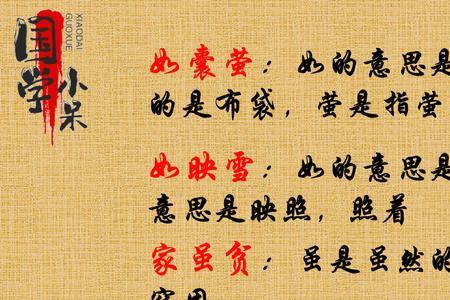 国学小呆
XIAODAI
GUOXUE
如囊萤：如的意思是
的是布袋，萤是指萤
如映雪：如的意思是
意思是映照，照着
家虽贫：虽是虽然的